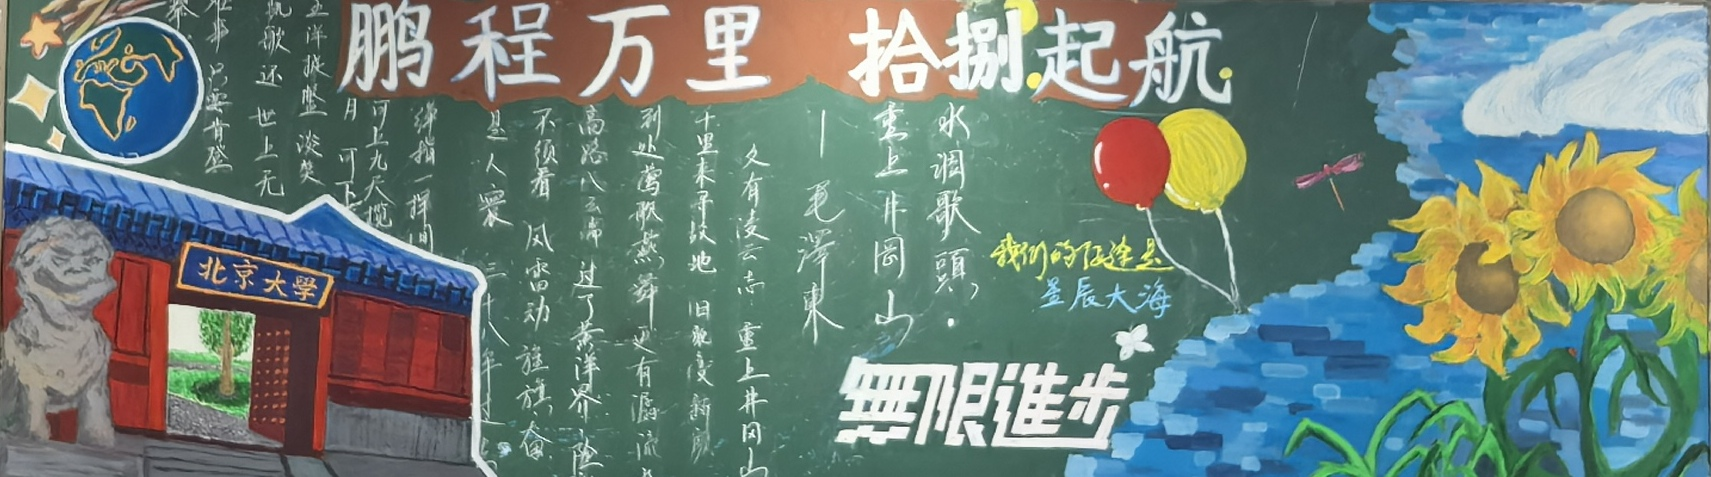 鹏程万里 拾捌起航
水调歌頭,·
重上井岡山
—毛澤東
久有凌云志 重上井冈山
千里来寻故地 旧貌变新颜
到处莺歌燕舞 更有潺流
高路入云端 过了黄洋界 险
不须看 风雷动 旌旗奋
是人寰 三十八年过
弹指一挥间
可上九天揽
月 可下
五洋捉鳖 谈笑
凯歌还 世上无
难事 只要肯登
攀
北京大學
我们的征途是
星辰大海
無限進步